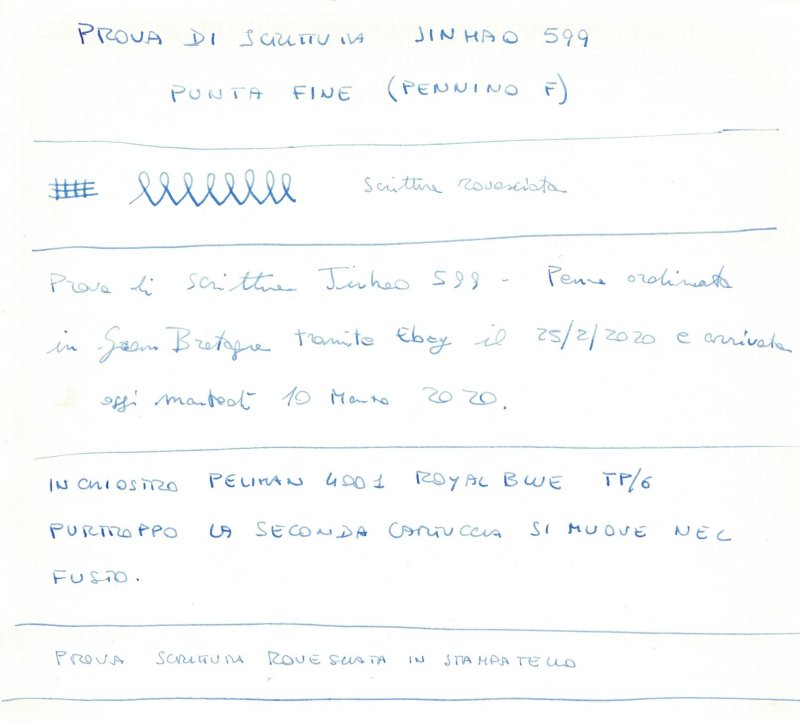 PROVA DI SCRITTURA JINHAO 599
PUNTA FINE (PENNINO F)
Scrittura rovesciata
Prova di scrittura Jinhao 599 - Penna ordinata
in Gran Bretagna tramite Ebay il 25/2/2020 e arrivata
oggi martedì 10 Marzo 2020.
INCHIOSTRO PELIKAN 4001 ROYAL BLUE TP/6
PURTROPPO LA SECONDA CARTUCCIA SI MUOVE NEL
FUSTO.
PROVA SCRITTURA ROVESCIATA IN STAMPATELLO